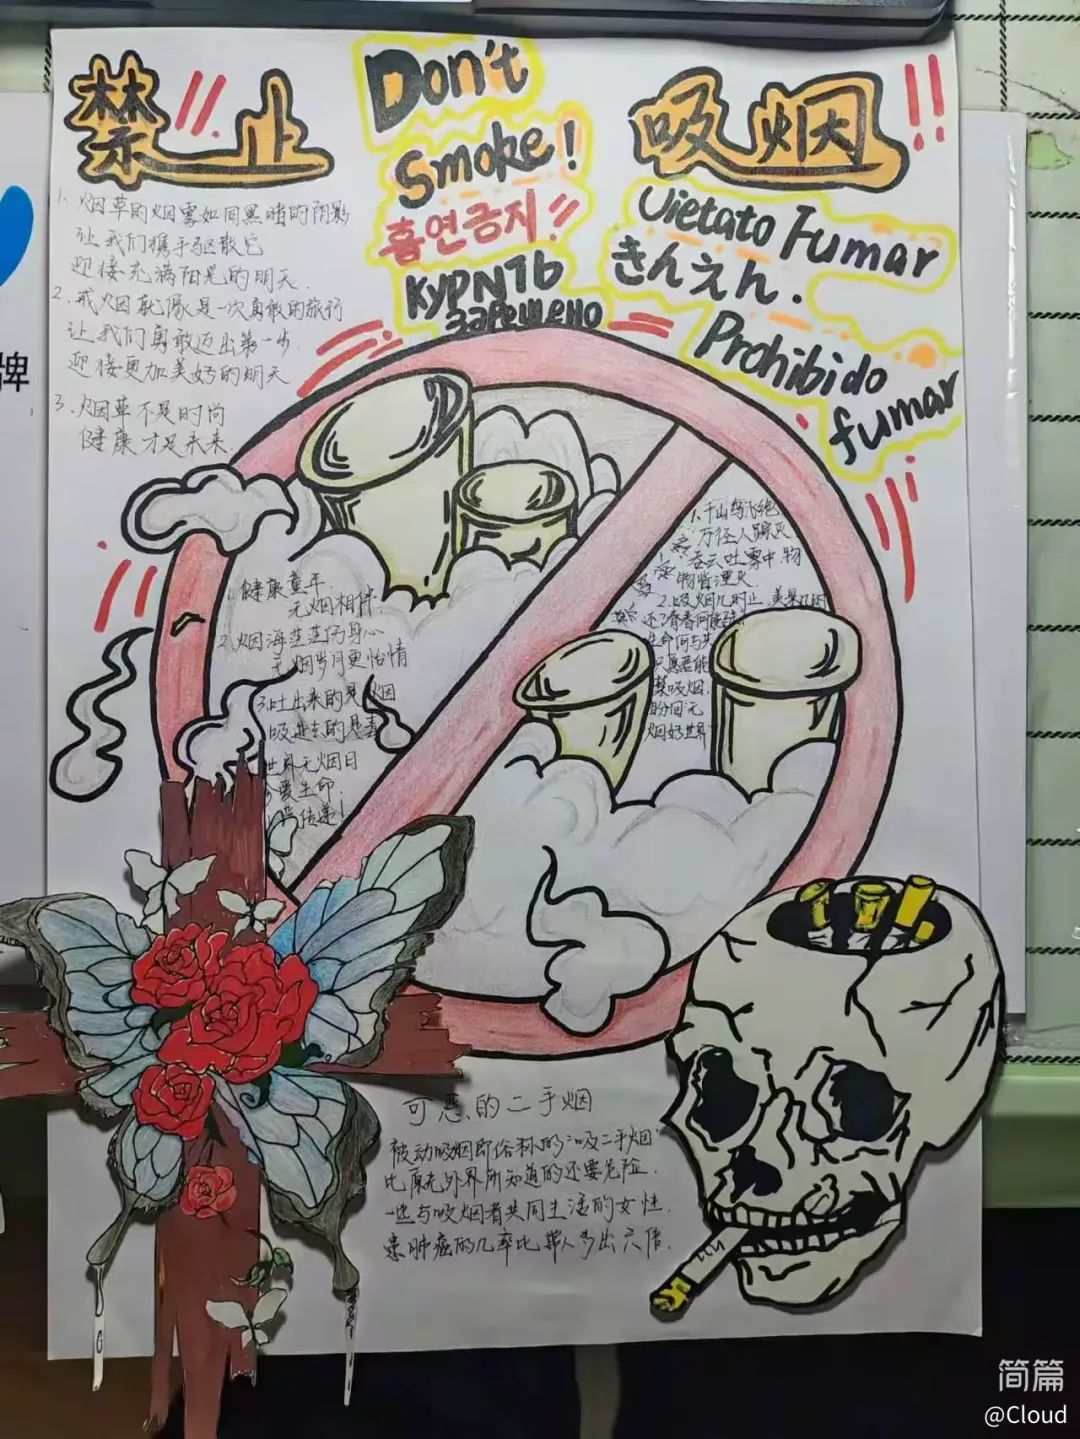 禁止
Don't
Smoke!
흡연금지!!
КУРИТЬ
запрещено
吸烟!!
Vietato Fumar
きんえん.
Prohibido
fumar
1、烟草的烟雾如同黑暗的阴影
让我们携手驱散它
迎接充满阳光的明天.
2、戒烟就像是一次勇敢的旅行
让我们勇敢迈出第一步.
迎接更加美好的明天
3、烟草不是时尚
健康才是未来.
1.健康童年,
无烟相伴.
2.烟海茫茫伤身心
无烟岁月更怡情
3.吐出来的是烟
吸进去的是毒
世界无烟日
爱生命
传递!
1、千山鸟飞绝
万径人踪灭
吞云吐雾中,物
物皆湮灭.
2.吸烟几时止
生命
只愿君能
禁吸烟.
烟好世界
可恶的二手烟
被动吸烟即俗称的"吸二手烟"
比原先外界所知道的还要危险.
一些与吸烟者共同生活的女性.
患肿瘤的几率比常人多出六倍.
牌
简篇
@Cloud